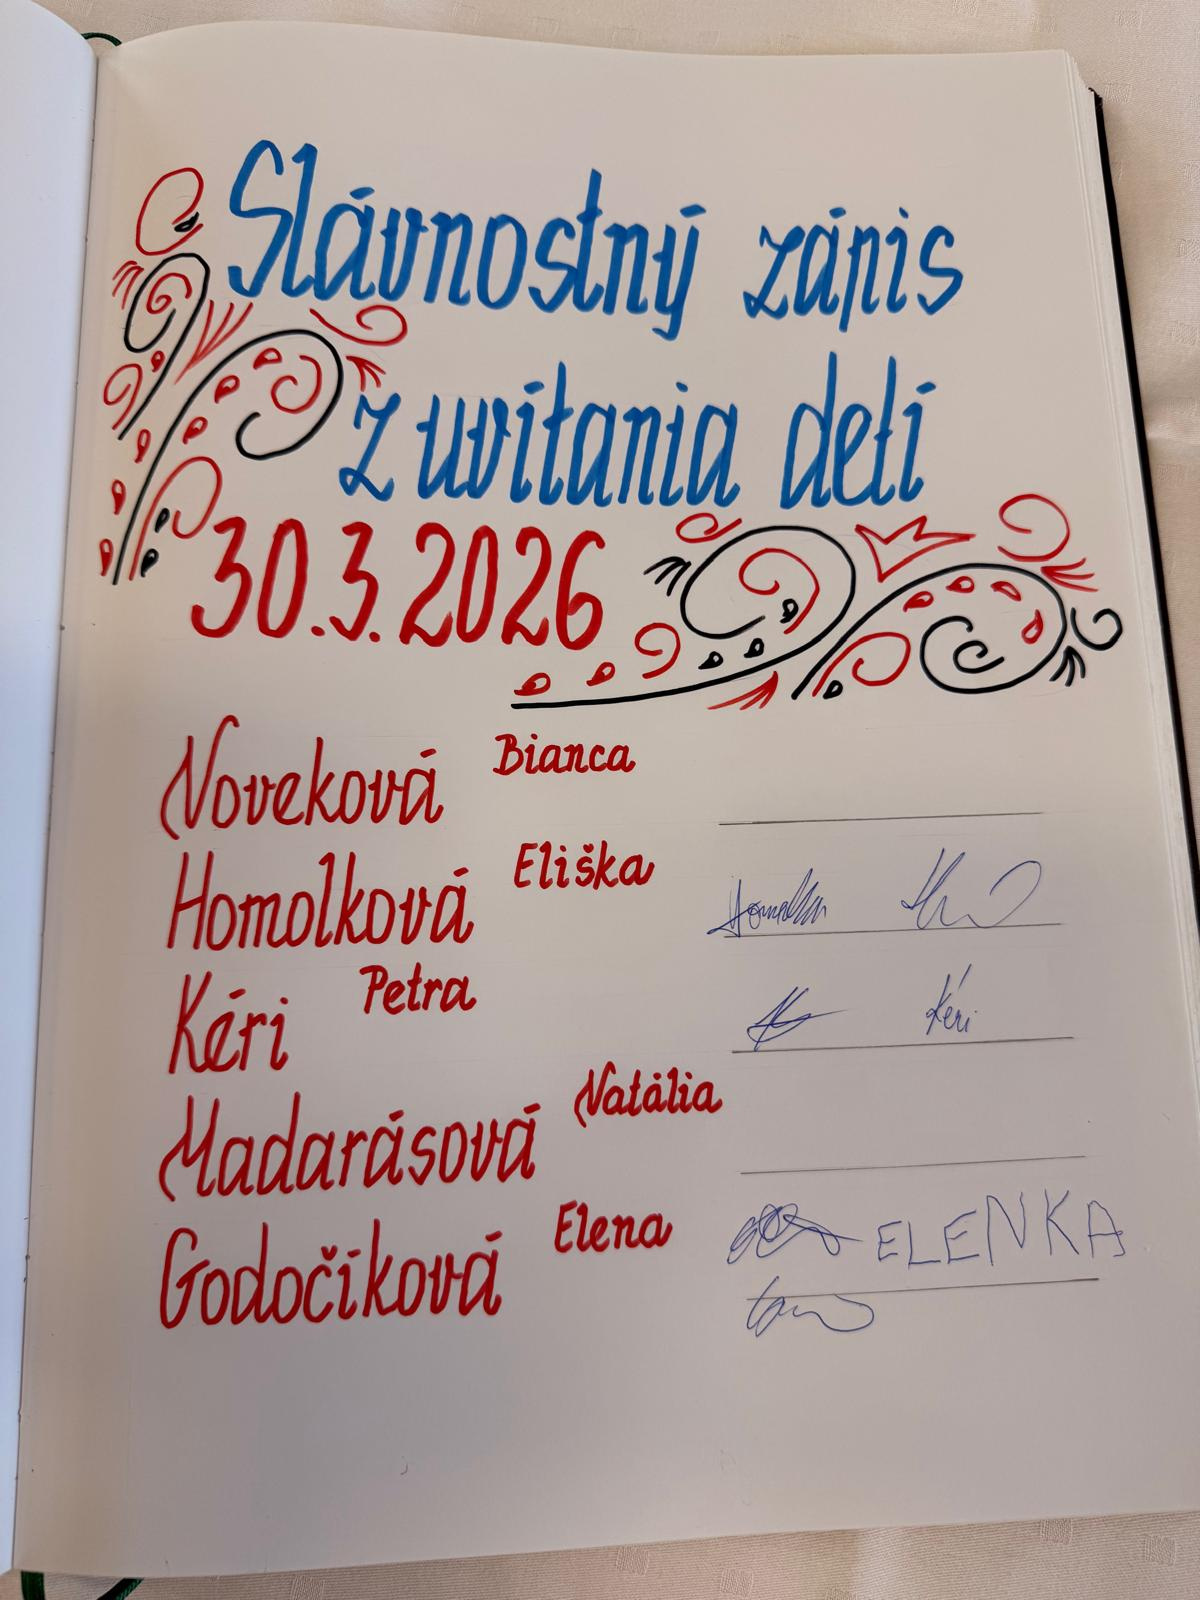 Slávnostný zápis
z uvítania detí
30.3.2026
Noveková Bianca
Homolková Eliška
Kéri Petra
Kéri
Madarásová Natália
Godočíková Elena
ELENKA